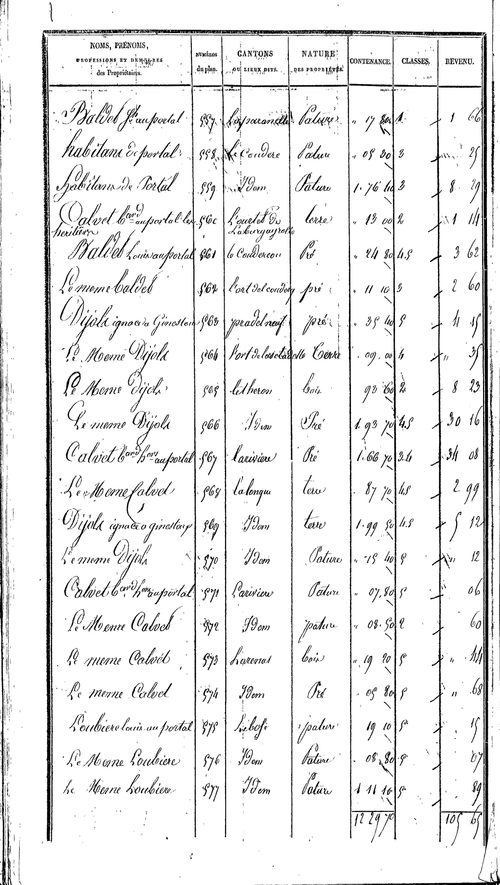 NOMS, PRÉNOMS, PROFESSIONS ET DEMEURES des Propriétaires. NUMÉROS du plan. CANTONS OU LIEUX DITS. NATURE DES PROPRIÉTÉS. CONTENANCE. CLASSES. REVENU.
Baldet au portal 557 Pature " 17 80 1 66
habitans de portal 558 Le Coudere Pature " 05 30 3 " 25
habitans de Portal 559 Idem Pature 1.76 40 3 8 . 29
Calvet au portal 560 terre " 13 00 2 1 14
heritiers
Baldet Louis au portal 561 le Coudercou Pré " 24 80 4.5 3 62
Le meme baldet 562 pré " 11 10 3 2 60
Dijols ignace a Ginestous 563 pradelneuf pré " 35 40 5 4 15
Le Meme Dijols 564 Terre " 09 . 00 4 " 35
Le Meme Dijols 565 bois 93 60 2 8 23
Le meme Dijols 566 Idem Pré 1. 93 70 4.5 30 16
Calvet au portal 567 Lariviere Pré 1.66 70 3.4 34 08
Le Meme Calvet 568 Lalongu terre " 87 70 4.5 2 99
Dijols ignace a ginestous 569 Idem terre 1.99 50 4.5 5 12
Le meme Dijols 570 Idem Pature " 15 40 5 " 12
Calvet au portal 571 Lariviere Pature " 07 . 80 5 06
Le Meme Calvet 572 Idem pature " 08 . 50 2 60
Le meme Calvet 573 bois " 19 20 5 " 44
Le meme Calvet 574 Idem Pré " 05 80 5 " 68
Loubiere louis au portal 575 pature 19 10 5 . 15
Le Meme Loubiere 576 Idem Pature . 08 . 80 5 07
Le Meme Loubiere 577 Idem Pature 1 11 10 5 . 89
12 29 70 105 65